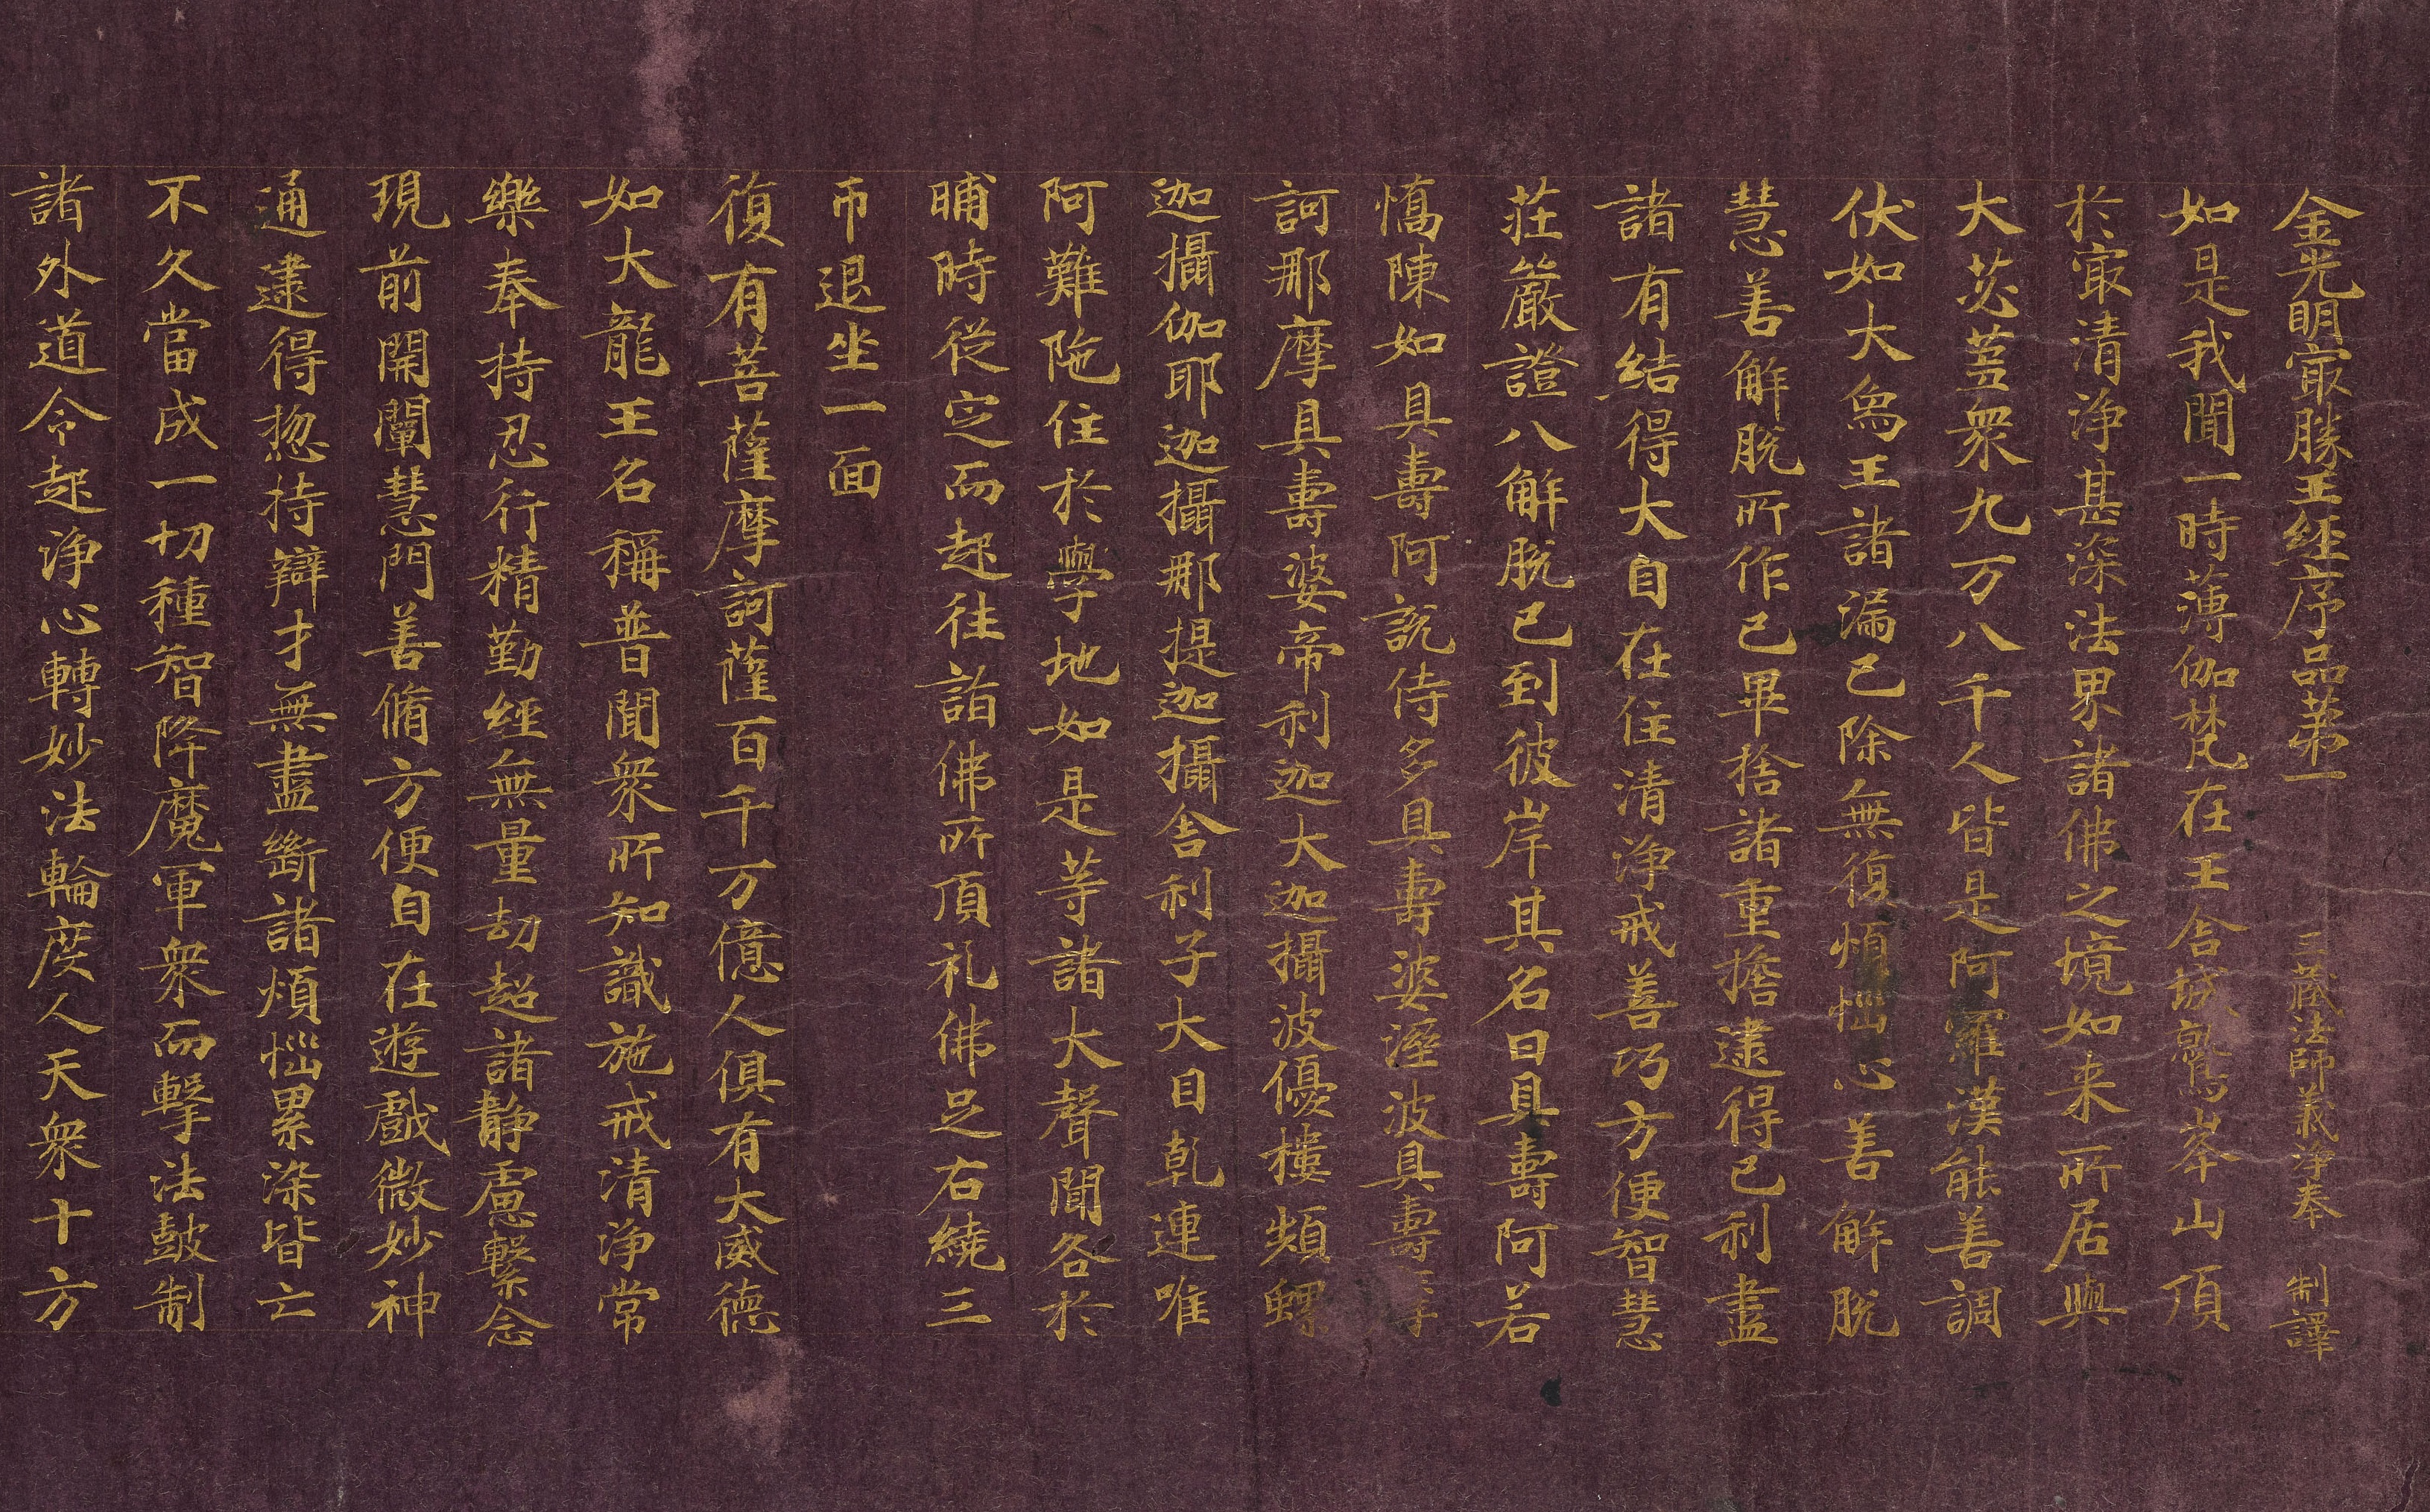 金光明冣勝王經序品第一 三藏法師義淨奉 制譯
如是我聞一時薄伽梵在王舍城鷲峯山頂
於冣清淨甚深法界諸佛之境如来所居與
大苾蒭衆九万八千人皆是阿羅漢能善調
伏如大烏王諸漏已除無復煩惱心善解脫
慧善解脫所作已畢捨諸重擔逮得己利盡
諸有結得大自在住清淨戒善巧方便智慧
莊嚴證八解脫已到彼岸其名曰具壽阿若
憍陳如具壽阿說侍多具壽婆溼波具壽摩
訶那摩具壽婆帝利迦大迦攝波優樓頻螺
迦攝伽耶迦攝那提迦攝舍利子大目乾連唯
阿難陁住於學地如是等諸大聲聞各於
晡時從定而起往詣佛所頂礼佛足右繞三
帀退坐一面
復有菩薩摩訶薩百千万億人俱有大威德
如大龍王名稱普聞衆所知識施戒清淨常
樂奉持忍行精勤經無量劫超諸靜慮繫念
現前開闡慧門善脩方便自在遊戲微妙神
通逮得惣持辯才無盡斷諸煩惱累染皆亡
不久當成一切種智降魔軍衆而擊法鼓制
諸外道令起淨心轉妙法輪度人天衆十方